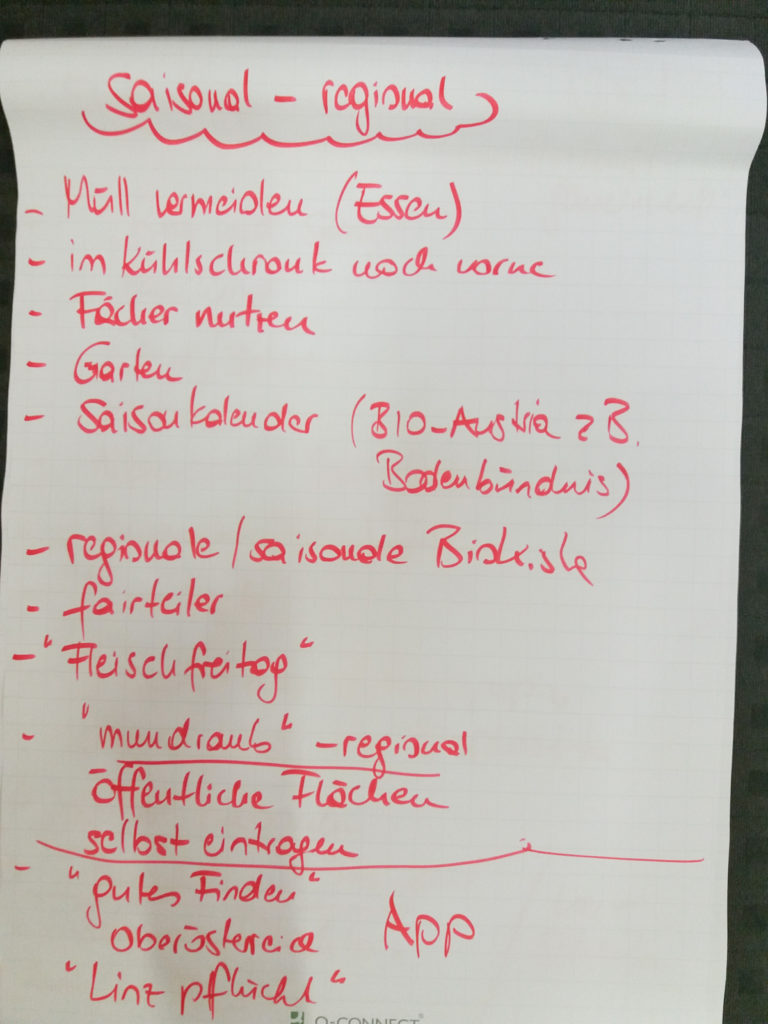 Saisonal - regional
- Müll vermeiden (Essen)
- im Kühlschrank nach vorne
- Fächer nutzen
- Garten
- Saisonkalender (BIO-Austria z B.
Bodenbündnis)
- regionale / saisonale Biokiste
- fairteiler
- "Fleischfreitag"
- "mundraub" - regional
öffentliche Flächen
selbst eintragen
- "gutes Finden"
Oberösterreich App
"Linz pflückt"
Q-CONNECT®